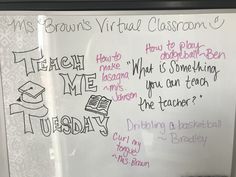 Ms. Brown's Virtual Classroom
TEACH
ME
TUESDAY
How to
make
lasagna
~Mrs.
Johnson
How to play
dodgeball~Ben
"What is something
you can teach
the teacher?"
Dribbling a basketball
~ Bradley
Curl my
tongue
~Ms. Brown